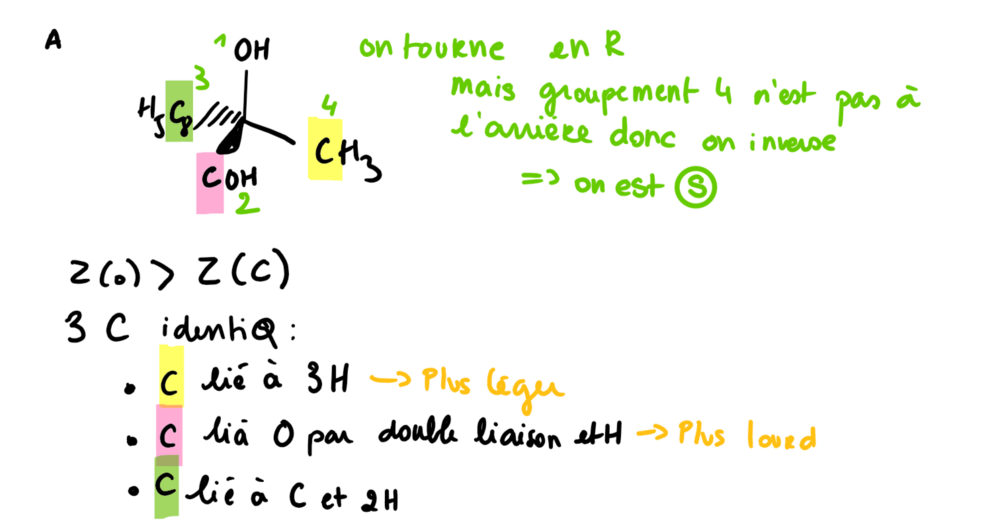 A
1 OH
on tourne en R
3
H5C2
4
CH3
mais groupement 4 n'est pas à
l'arrière donc on inverse
COH
2
=> on est S
Z(O) > Z(C)
3 C identiQ :
• C lié à 3H → Plus léger
• C lià O par double liaison et H → Plus lourd
• C lié à C et 2H